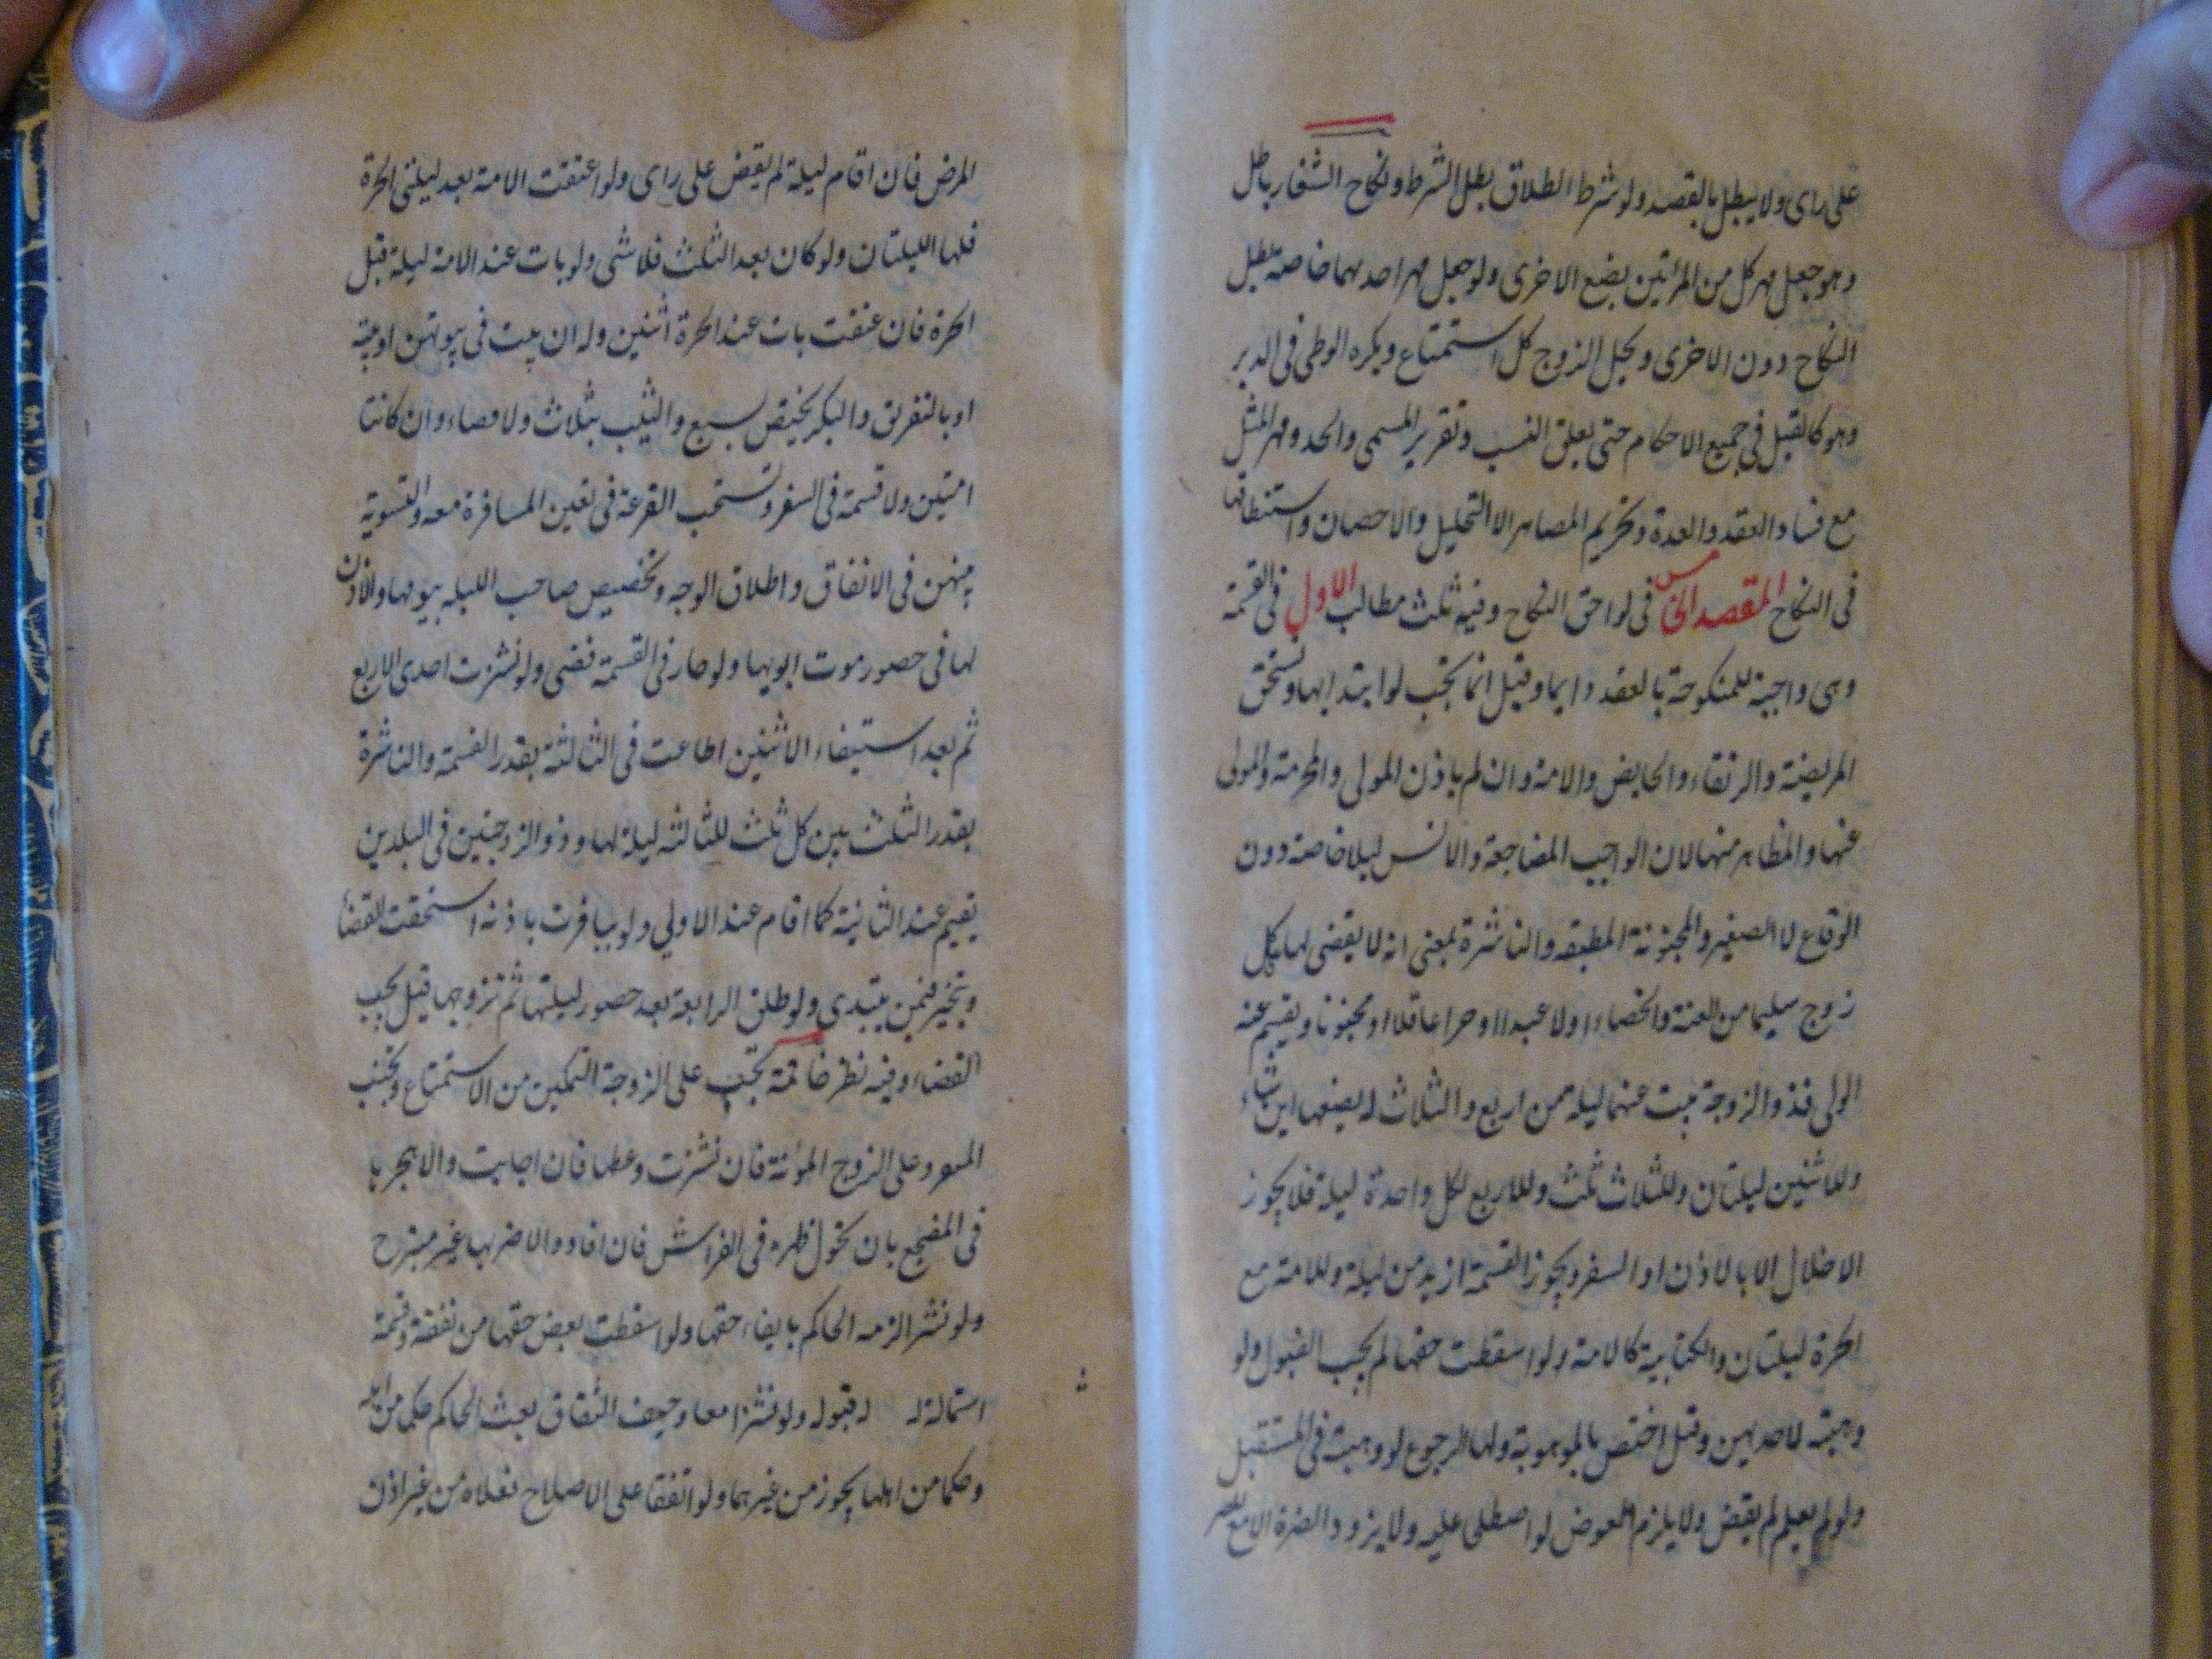 على راى ولا يبطل بالقصد ولو شرط الطلاق بطل الشرط ونكاح الشغار باطل
وهو جعل مهر كل من المراتين بضع الاخرى ولو جعل مهر احديهما خاصة بطل
النكاح دون الاخرى ويحل الزوج كل استمتاع ويكره الوطى فى الدبر
وهو كالقبل فى جميع الاحكام حتى تعلق النسب وتقرير المسمى والحد ومهر المثل
مع فساد العقد والعدة وتحريم المصاهر الا التحليل والاحصان واستنطاقها
فى النكاح المقصد الخامس فى لواحق النكاح وفيه ثلث مطالب الاول فى القسمة
وهى واجبة للمنكوحة بالعقد دايما وقيل انما تجب لو ابتدا بها وتستحق
المريضة والرتقاء والحايض والامة وان لم ياذن المولى والمحرمة والمولى
عنها والمظاهر منها لان الواجب المضاجعة والانس ليلا خاصة دون
الوقاع لا الصغير والمجنونة المطبقه والناشزة بمعنى انه لا يقضى لها وكل
زوج سليما من العنة والخصاء اولا عبدا او حرا عاقلا او مجنونا ويقسم عنه
الولى فذو الزوجة يبيت عنهما ليلة من اربع والثلاث له يضعها اين شاء
وللاثنين ليلتان وللثلاث ثلث وللاربع لكل واحدة ليلة فلا يجوز
الاخلال الا بالاذن او السفر ويجوز القسمة ازيد من ليلة وللامة مع
الحرة ليلتان والكتابية كالامة ولو اسقطت حقها لم يجب القبول ولو
وهبته لاحديهن وقبل اختص بالموهوبة ولها الرجوع لو وهبته فى المستقبل
ولو لم يعلم لم يقض ولا يلزم العوض لو اصطلى عليه ولا يزور الضرة الا مع
المرض فان اقام ليلة لم يقض على راى ولو اعتقت الامة بعد ليلتى الحرة
فلها الليلتان ولو كان بعد الثلث فلا شى ولو بات عند الامة ليلة قبل
الحرة فان عتقت بات عند الحرة اثنين وله ان يبيت فى بيوتهن او بيته
او بالتفريق والبكر يختص بسبع والثيب بثلاث ولا قضاء وان كانتا
امتين ولا قسمة فى السفر وتستحب القرعة فى تعين المسافرة معه والتسوية
بينهن فى الانفاق واطلاق الوجه وتخصيص صاحب الليله بيومها والاذن
لها فى حضور موت ابويها ولو جار فى القسمة قضى ولو نشزت احدى الاربع
ثم بعد استيفاء الاثنين اطاعت فى الثالثة بقدر القسمة والناشزة
بقدر الثلث بين كل ثلث للثالثه ليلة لها وذو الزوجتين فى البلدين
يقيم عند الثانية كما اقام عند الاولي ولو سافرت باذنه استحقت القضا
ويتخير فيمن يبتدى ولو طلق الرابعة بعد حضور ليلتها ثم تزوجها قيل يجب
القضاء وفيه نظر خاتمة تجب على الزوجة التمكين من الاستمتاع وتجنب
المنفر وعلى الزوج المؤنة فان نشزت وعظها فان اجابت والا هجرها
فى المضجع بان يحول ظهره فى الفراش فان افاد والا ضربها غير مبرح
ولو نشز الزمه الحاكم بايفاء حقها ولو اسقطت بعض حقها من نفقة وقسمة
استمالة له له قبوله ولو نشزا معا وخيف الشقاق بعث الحاكم حكما من اهله
وحكما من اهلها يجوز من غيرهما ولو اتفقا على الاصلاح فعلاه من غير اذن